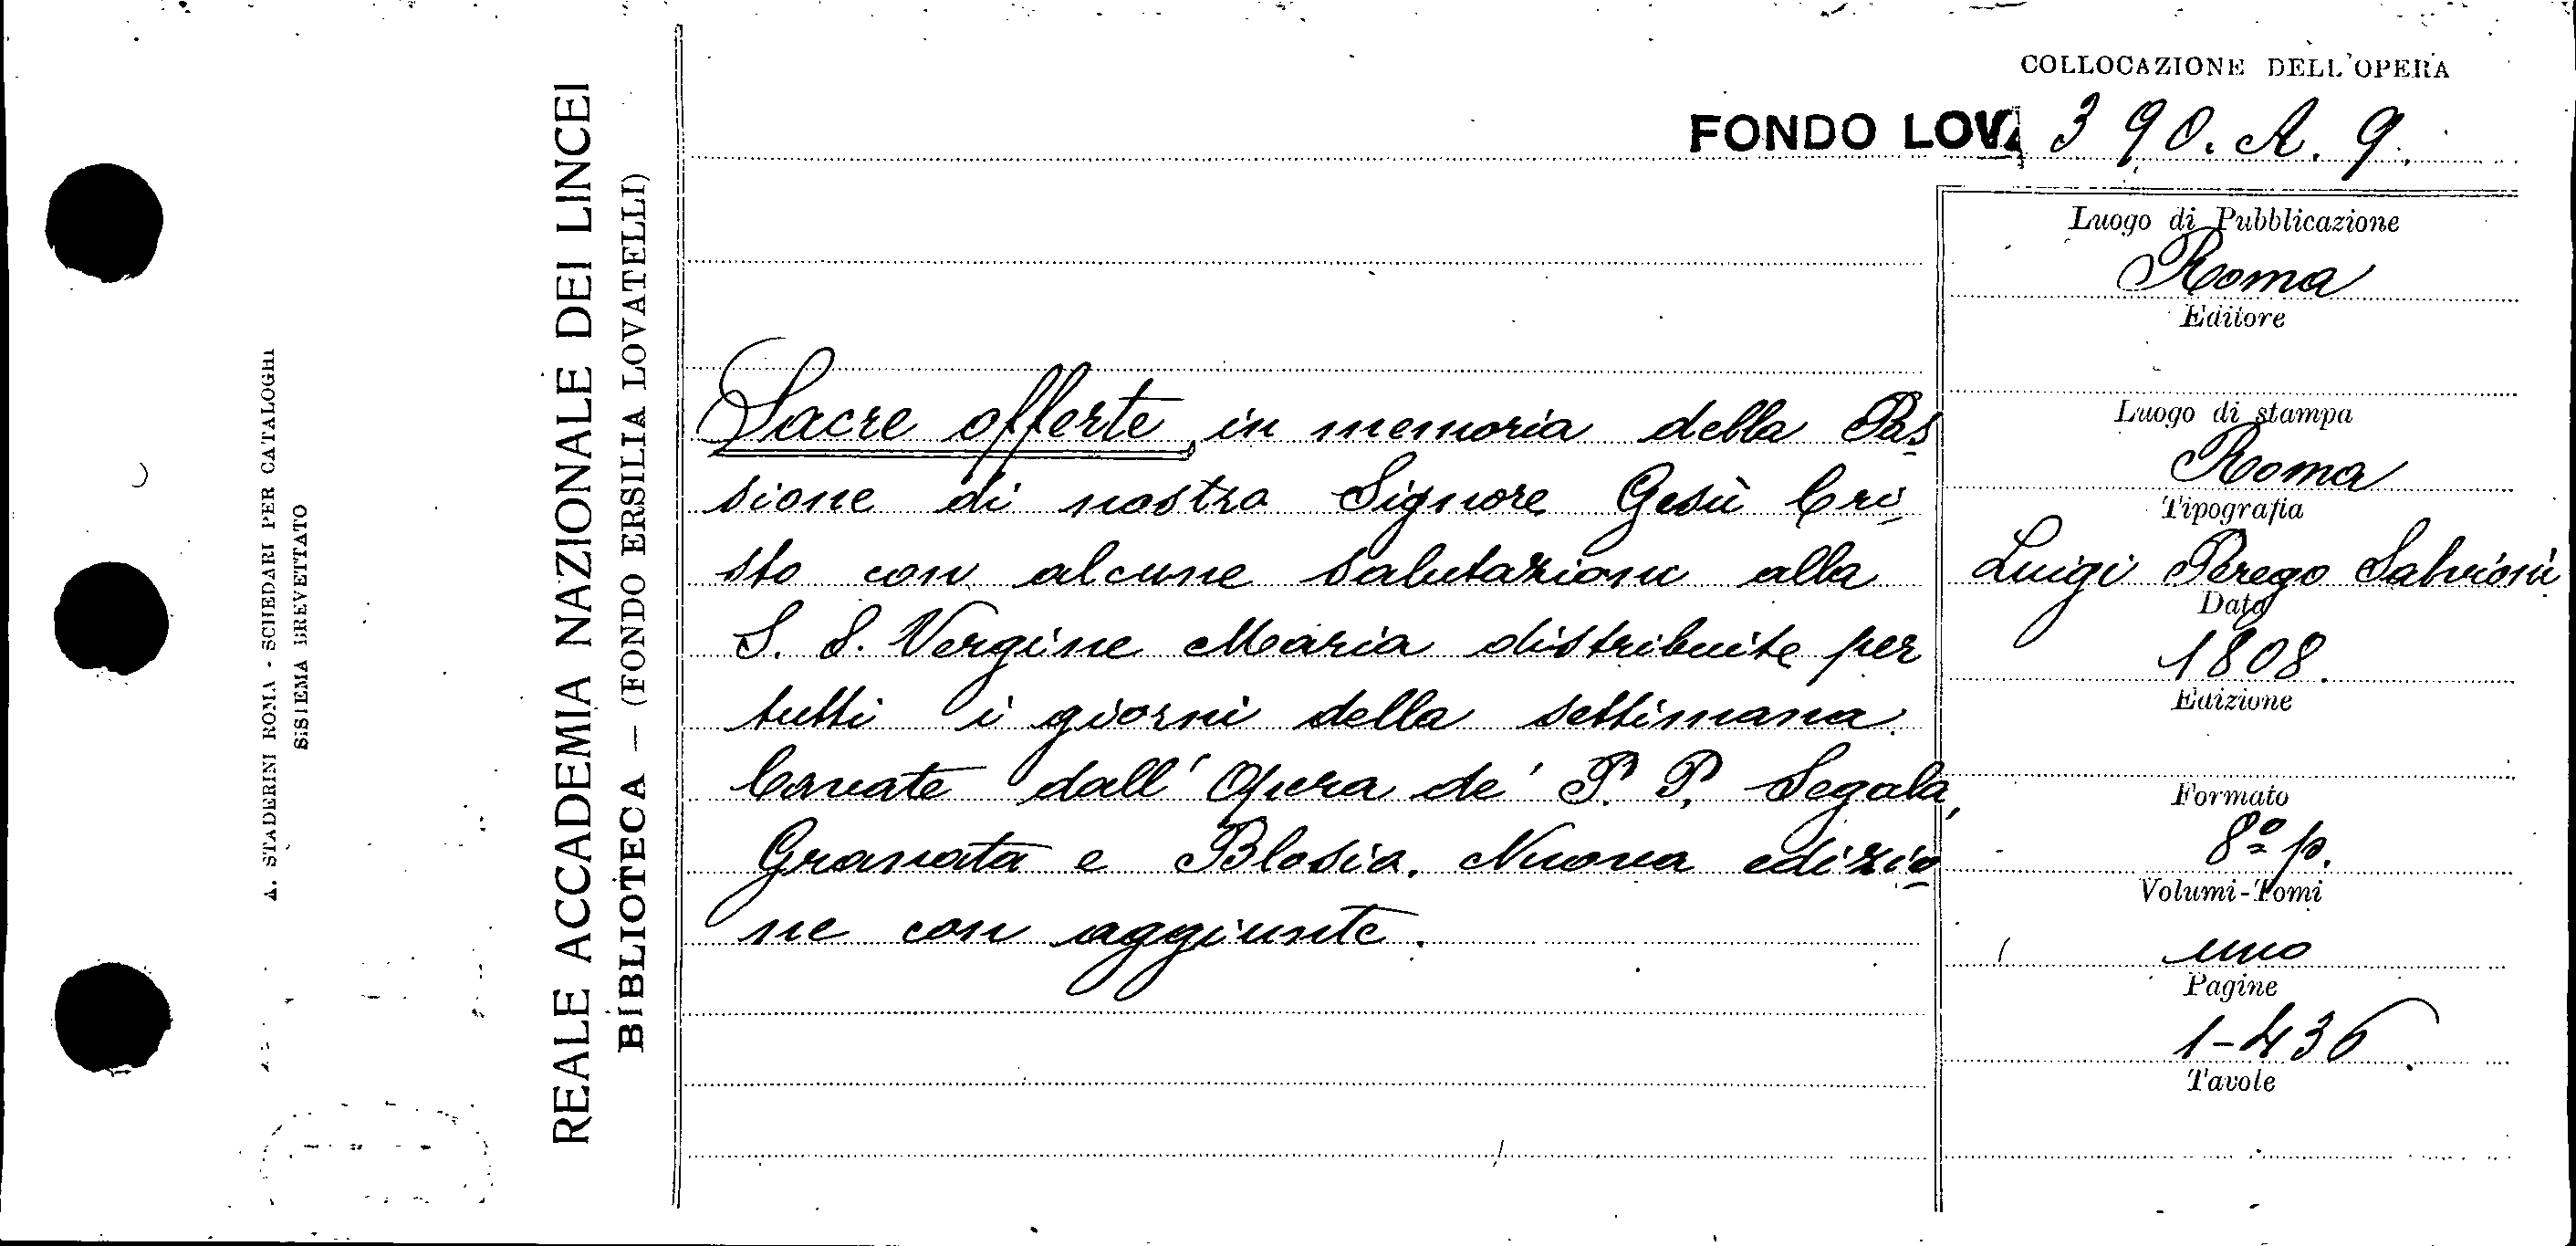 COLLOCAZIONE DELL'OPERA
FONDO LOVA 390. A. 9.
REALE ACCADEMIA NAZIONALE DEI LINCEI
BIBLIOTECA — (FONDO ERSILIA LOVATELLI)
A. STADERINI ROMA - SCHEDARI PER CATALOGHI
SISTEMA BREVETTATO
Sacre offerte, in memoria della Pas
sione di nostro Signore Gesù Cri
sto con alcune salutazioni alla
S. S. Vergine Maria distribuite per
tutti i giorni della settimana
Cavate dall' Opera de' P. P. Segala,
Granata e Blosio. Nuova edizio
ne con aggiunte.
Luogo di Pubblicazione
Roma
Editore
Luogo di stampa
Roma
Tipografia
Luigi Perego Salvioni
Data
1808.
Edizione
Formato
8º p.
Volumi-Tomi
uno
Pagine
1-436
Tavole